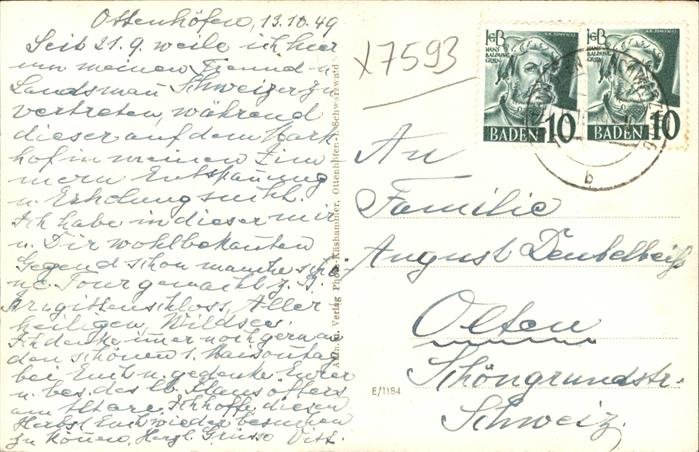 Ottenhöfen, 13.10.49
Seit 21.9. weile ich hier
um meinen Freund u.
Landsmann Schweizer zu
vertreten, während
dieser auf dem Mark
hof in meinen Zim
mern Entspannung
u. Erholung sucht.
Ich habe in dieser mir
u. Dir wohlbekannten
Gegend schon manche schö
ne Tour gemacht z. B.
Allerheiligen, Wildsee.
Ich denke immer noch gern an
den schönen 1. Maisonntag
bei Euch u. gedenke Eurer
u. bes. des lb. Klaus öfters
am Altare. Ich hoffe, diesen
Herbst Euch wieder besuchen
zu können. Herzl. Grüsse
Aufn. u. Verlag Photo-Käshammer, Ottenhöfen i. Schwarzwald
x7593
HANS BALDUNG GRIEN
BADEN 10
HANS BALDUNG GRIEN
BADEN 10
b
An
Familie
August Deubelbeiß
Olten
Schöngrundstr.
Schweiz.
E/1184